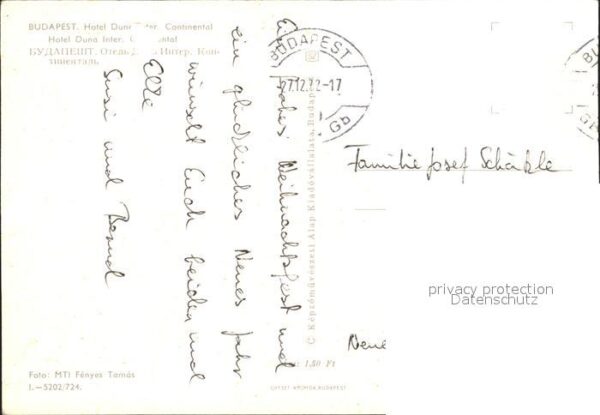 BUDAPEST. Hotel Duna Inter. Continental
Hotel Duna Inter. Continental
БУДАПЕШТ. Отель Дуна Интер. Кон-
тиненталь
Ein frohes Weihnachtsfest und
ein glückliches Neues Jahr
wünscht Euch beiden und
Elli
Susi und Bernd
BUDAPEST
27.12.72-17
Gb
Familie Josef Schäble
privacy protection
Datenschutz
Neue
C Képzőművészeti Alap Kiadóvállalata, Budapest
1,50 Ft
OFFSET NYOMDA, BUDAPEST
Foto: MTI Fényes Tamás
I.—5202/724.